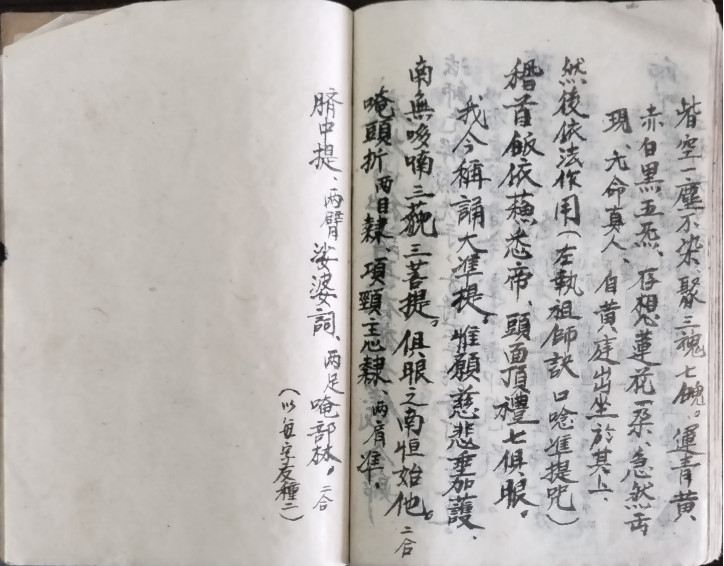 皆空一塵不染、聚三魂七魄。運青黄、
赤白黑五炁、存想心蓮花一朶、忽然
現、元命真人、自黄庭出坐於其上、
然後依法作用(左執祖師訣 口唸准提咒)
稽首皈依蘓悉帝、頭面頂禮七俱胝。
我今稱誦大准提。惟願慈悲垂加護、
南無哆喃三藐三菩提。俱胝之南怛始他。二合
唵頭折兩目隸、項頸主心隸、兩肩准、
臍中提、兩臂娑婆詞、兩足唵部林。二合
(以每字友種二)